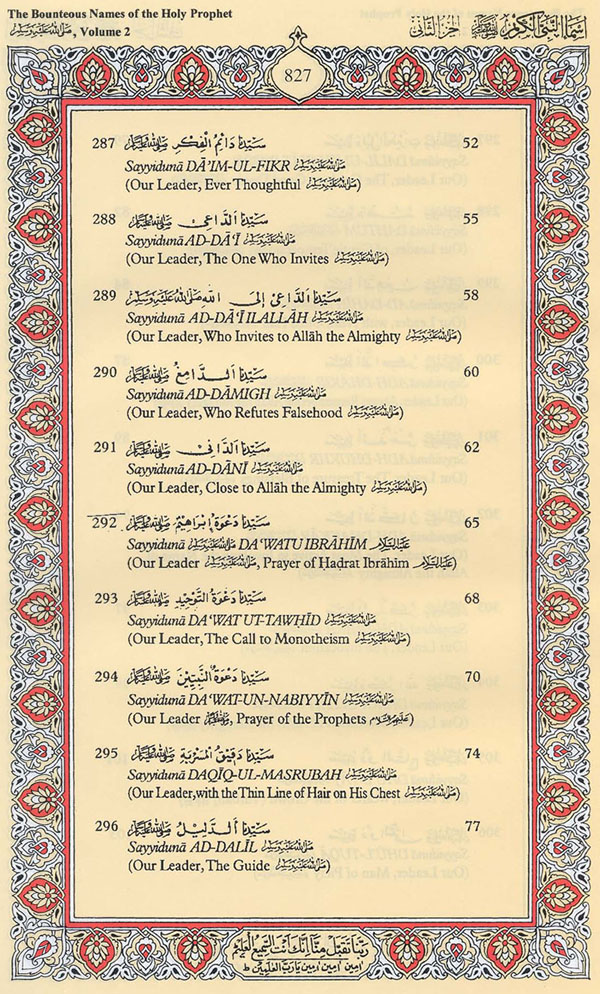 The Bounteous Names of the Holy Prophet
ﷺ, Volume 2
أسماء النبي الكريم ﷺ الجزء الثاني
827
287 سيدنا دائم الفكر ﷺ 52
Sayyidunā DĀ'IM-UL-FIKR ﷺ
(Our Leader, Ever Thoughtful ﷺ)
288 سيدنا الداعي ﷺ 55
Sayyidunā AD-DĀ'Ī ﷺ
(Our Leader, The One Who Invites ﷺ)
289 سيدنا الداعي إلى الله ﷺ 58
Sayyidunā AD-DĀ'Ī ILALLĀH ﷺ
(Our Leader, Who Invites to Allāh the Almighty ﷺ)
290 سيدنا الدامغ ﷺ 60
Sayyidunā AD-DĀMIGH ﷺ
(Our Leader, Who Refutes Falsehood ﷺ)
291 سيدنا الداني ﷺ 62
Sayyidunā AD-DĀNĪ ﷺ
(Our Leader, Close to Allāh the Almighty ﷺ)
292 سيدنا دعوة إبراهيم ﷺ 65
Sayyidunā ﷺ DA'WATU IBRĀHĪM عليه السلام
(Our Leader ﷺ, Prayer of Ḥaḍrat Ibrāhīm عليه السلام)
293 سيدنا دعوة التوحيد ﷺ 68
Sayyidunā DA'WAT UT-TAWḤĪD ﷺ
(Our Leader, The Call to Monotheism ﷺ)
294 سيدنا دعوة النبيين ﷺ 70
Sayyidunā DA'WAT-UN-NABIYYĪN ﷺ
(Our Leader ﷺ, Prayer of the Prophets عليهم السلام)
295 سيدنا دقيق المسربة ﷺ 74
Sayyidunā DAQĪQ-UL-MASRUBAH ﷺ
(Our Leader, with the Thin Line of Hair on His Chest ﷺ)
296 سيدنا الدليل ﷺ 77
Sayyidunā AD-DALĪL ﷺ
(Our Leader, The Guide ﷺ)
ربنا تقبل منا إنك أنت السميع العليم
امين امين امين يا رب العلمين ط